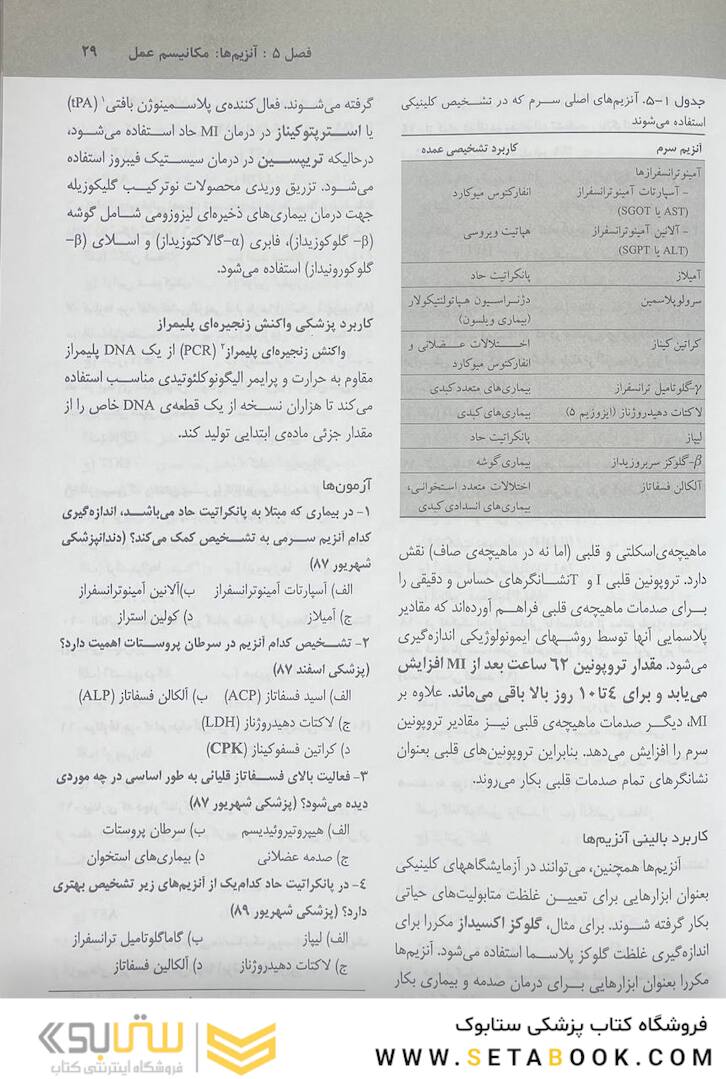 فصل ۵ : آنزیم‌ها: مکانیسم عمل ۲۹
جدول ۱-۵. آنزیم‌های اصلی سرم که در تشخیص کلینیکی
استفاده می‌شوند
آنزیم سرم کاربرد تشخیصی عمده
آمینوترانسفرازها
- آسپارتات آمینوترانسفراز انفارکتوس میوکارد
(AST یا SGOT)
- آلانین آمینوترانسفراز هپاتیت ویروسی
(ALT یا SGPT)
آمیلاز پانکراتیت حاد
سرولوپلاسمین دژنراسیون هپاتولنتیکولار
(بیماری ویلسون)
کراتین کیناز اختلالات عضلانی و
انفارکتوس میوکارد
γ-گلوتامیل ترانسفراز بیماری‌های متعدد کبدی
لاکتات دهیدروژناز (ایزوزیم ۵) بیماری‌های کبدی
لیپاز پانکراتیت حاد
β-گلوکز سربروزیداز بیماری گوشه
آلکالن فسفاتاز اختلالات متعدد استخوانی،
بیماری‌های انسدادی کبدی
ماهیچه‌ی اسکلتی و قلبی (اما نه در ماهیچه‌ی صاف) نقش
دارد. تروپونین قلبی I و T نشانگرهای حساس و دقیقی را
برای صدمات ماهیچه‌ی قلبی فراهم آورده‌اند که مقادیر
پلاسمایی آنها توسط روشهای ایمونولوژیکی اندازه‌گیری
می‌شود. مقدار تروپونین ۶۲ ساعت بعد از MI افزایش
می‌یابد و برای ۴تا۱۰ روز بالا باقی می‌ماند. علاوه بر
MI، دیگر صدمات ماهیچه‌ی قلبی نیز مقادیر تروپونین
سرم را افزایش می‌دهد. بنابراین تروپونین‌های قلبی بعنوان
نشانگرهای تمام صدمات قلبی بکار می‌روند.
کاربرد بالینی آنزیم‌ها
آنزیم‌ها همچنین، می‌توانند در آزمایشگاههای کلینیکی
بعنوان ابزارهایی برای تعیین غلظت متابولیت‌های حیاتی
بکار گرفته شوند. برای مثال، گلوکز اکسیداز مکررا برای
اندازه‌گیری غلظت گلوکز پلاسما استفاده می‌شود. آنزیم‌ها
مکررا بعنوان ابزارهایی برای درمان صدمه و بیماری بکار
گرفته می‌شوند. فعال‌کننده‌ی پلاسمینوژن بافتی۱ (tPA)
یا استرپتوکیناز در درمان MI حاد استفاده می‌شود،
درحالیکه تریپسین در درمان سیستیک فیبروز استفاده
می‌شود. تزریق وریدی محصولات نوترکیب گلیکوزیله
جهت درمان بیماری‌های ذخیره‌ای لیزوزومی شامل گوشه
(β- گلوکوزیداز)، فابری (α-گالاکتوزیداز) و اسلای (β-
گلوکورونیداز) استفاده می‌شود.
کاربرد پزشکی واکنش زنجیره‌ای پلیمراز
واکنش زنجیره‌ای پلیمراز۲ (PCR) از یک DNA پلیمراز
مقاوم به حرارت و پرایمر الیگونوکلئوتیدی مناسب استفاده
می‌کند تا هزاران نسخه از یک قطعه‌ی DNA خاص را از
مقدار جزئی ماده‌ی ابتدایی تولید کند.
آزمون‌ها
۱- در بیماری که مبتلا به پانکراتیت حاد می‌باشد، اندازه‌گیری
کدام آنزیم سرمی به تشخیص کمک می‌کند؟ (دندانپزشکی
شهریور ۸۷)
الف) آسپارتات آمینوترانسفراز ب)آلانین آمینوترانسفراز
ج) آمیلاز د) کولین استراز
۲- تشخیص کدام آنزیم در سرطان پروستات اهمیت دارد؟
(پزشکی اسفند ۸۷)
الف) اسید فسفاتاز (ACP) ب) آلکالن فسفاتاز (ALP)
ج) لاکتات دهیدروژناز (LDH)
د) کراتین فسفوکیناز (CPK)
۳- فعالیت بالای فسفاتاز قلیانی به طور اساسی در چه موردی
دیده می‌شود؟ (پزشکی شهریور ۸۷)
الف) هیپروتیروئیدیسم ب) سرطان پروستات
ج) صدمه عضلانی د) بیماری‌های استخوان
۴- در پانکراتیت حاد کدام‌یک از آنزیم‌های زیر تشخیص بهتری
دارد؟ (پزشکی شهریور ۸۹)
الف) لیپاز ب) گاماگلوتامیل ترانسفراز
ج) لاکتات دهیدروژناز د) آلکالین فسفاتاز
فروشگاه کتاب پزشکی ستابوک
WWW.SETABOOK.COM
ستابوک
فروشگاه اینترنتی کتاب